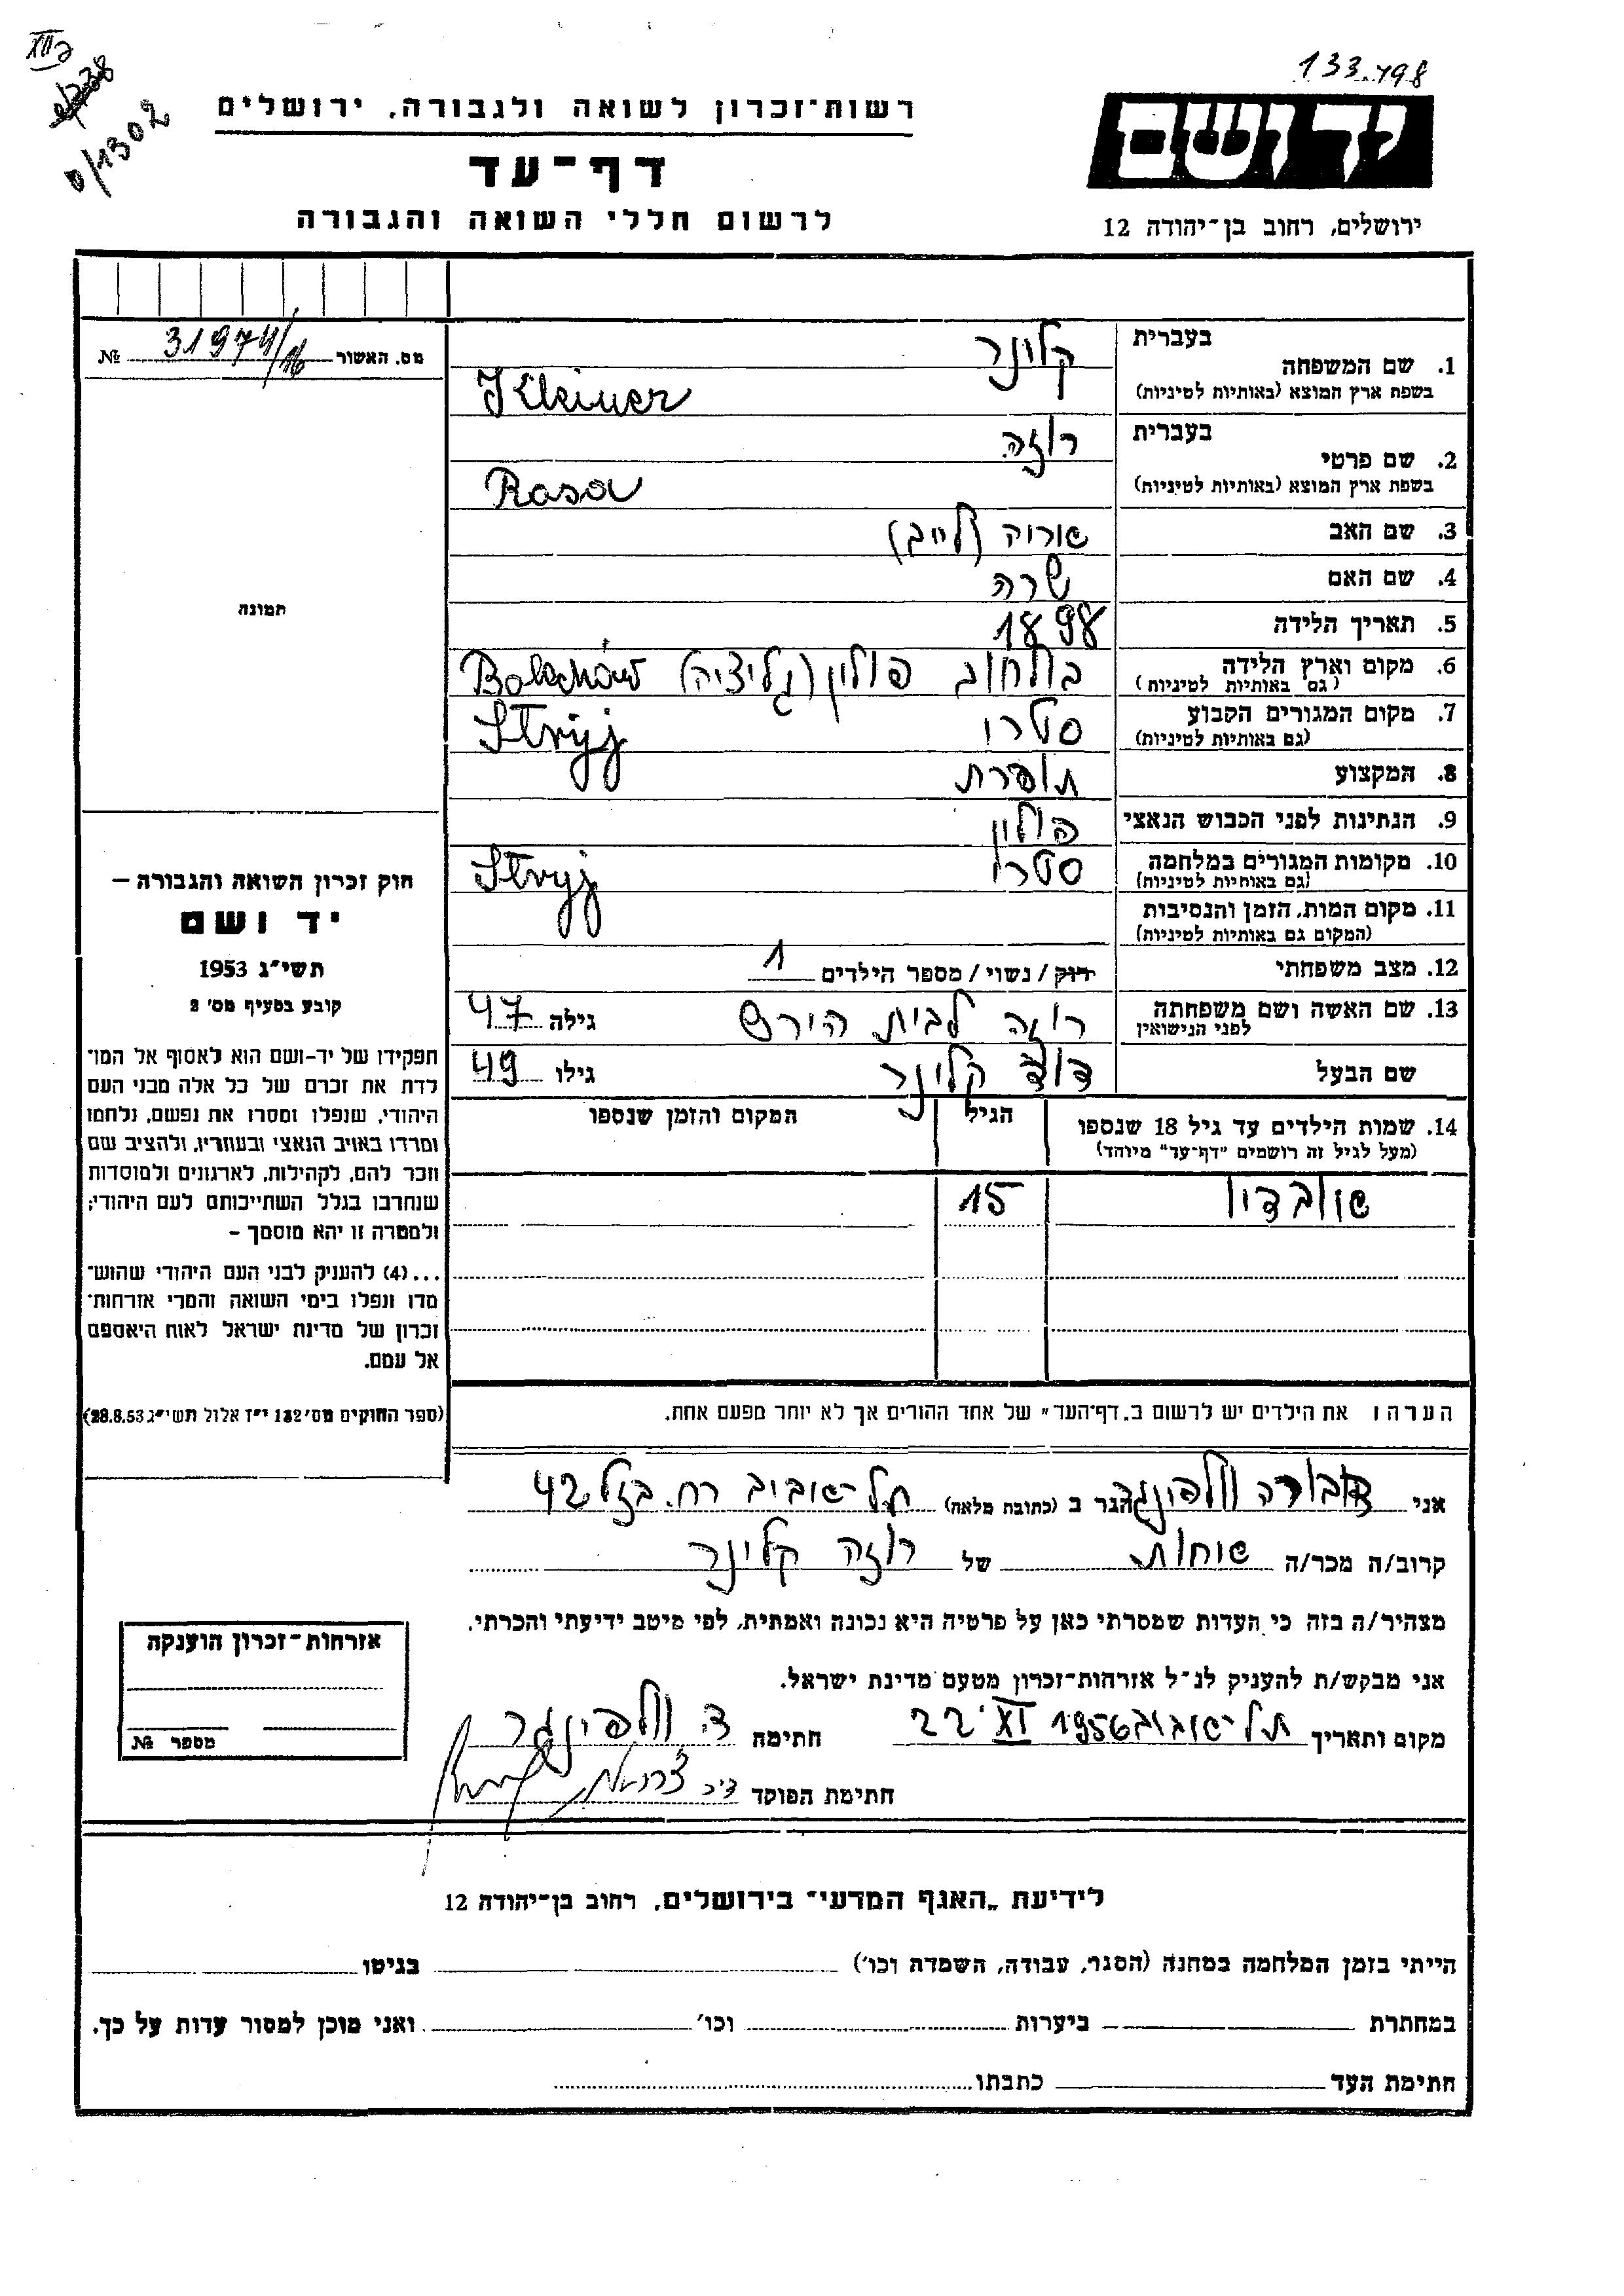 133.798
XII
0/1302
יד ושם
רשות־זכרון לשואה ולגבורה, ירושלים
דף־עד
לרשום חללי השואה והגבורה
ירושלים, רחוב בן־יהודה 12
מס. האשור 31974/16 №
תמונה
1. שם המשפחה
בעברית קלינר
בשפת ארץ המוצא (באותיות לטיניות) Kleiner
2. שם פרטי
בעברית רוזה
בשפת ארץ המוצא (באותיות לטיניות) Rosa
3. שם האב אריה (לייב)
4. שם האם שרה
5. תאריך הלידה 1898
6. מקום וארץ הלידה בולחוב פולין (גליציה) Bolechów
(גם באותיות לטיניות)
7. מקום המגורים הקבוע סטרי Stryj
(גם באותיות לטיניות)
8. המקצוע תופרת
9. הנתינות לפני הכבוש הנאצי פולין
10. מקומות המגורים במלחמה סטרי Stryj
(גם באותיות לטיניות)
11. מקום המות, הזמן והנסיבות
(המקום גם באותיות לטיניות)
12. מצב משפחתי רוק / נשוי / מספר הילדים 1
13. שם האשה ושם משפחתה רוזה לבית הירש גילה 47
לפני הנישואין
שם הבעל דוד קלינר גילו 49
14. שמות הילדים עד גיל 18 שנספו הגיל המקום והזמן שנספו
(מעל לגיל זה רושמים "דף־עד" מיוחד)
15
הערה: את הילדים יש לרשום ב„דף־העד" של אחד ההורים אך לא יותר מפעם אחת.
חוק זכרון השואה והגבורה –
יד ושם
תשי"ג 1953
קובע בסעיף מס' 2
תפקידו של יד־ושם הוא לאסוף אל המו־
לדת את זכרם של כל אלה מבני העם
היהודי, שנפלו ומסרו את נפשם, נלחמו
ומרדו באויב הנאצי ובעוזריו, ולהציב שם
וזכר להם, לקהילות, לארגונים ולמוסדות
שנחרבו בגלל השתייכותם לעם היהודי;
ולמטרה זו יהא מוסמך –
...(4) להעניק לבני העם היהודי שהוש־
מדו ונפלו בימי השואה והמרי אזרחות־
זכרון של מדינת ישראל לאות היאספם
אל עמם.
(ספר החוקים מס' 132 י"ז אלול תשי"ג 28.8.53)
אני דבורה וולפינגר הגר ב (כתובת מלאה) תל־אביב רח. בזל 42
קרוב/ה מכר/ה אחות של רוזה קלינר
מצהיר/ה בזה כי העדות שמסרתי כאן על פרטיה היא נכונה ואמתית, לפי מיטב ידיעתי והכרתי.
אני מבקש/ת להעניק לנ"ל אזרחות־זכרון מטעם מדינת ישראל.
מקום ותאריך תל־אביב 22 XI 1956 חתימה ד. וולפינגר
חתימת הפוקד
אזרחות־זכרון הוענקה
מספר №
לידיעת „האגף המדעי" בירושלים, רחוב בן־יהודה 12
הייתי בזמן המלחמה במחנה (הסגר, עבודה, השמדה וכו') בגיטו
במחתרת ביערות וכו' ואני מוכן למסור עדות על כך.
חתימת העד כתבתו